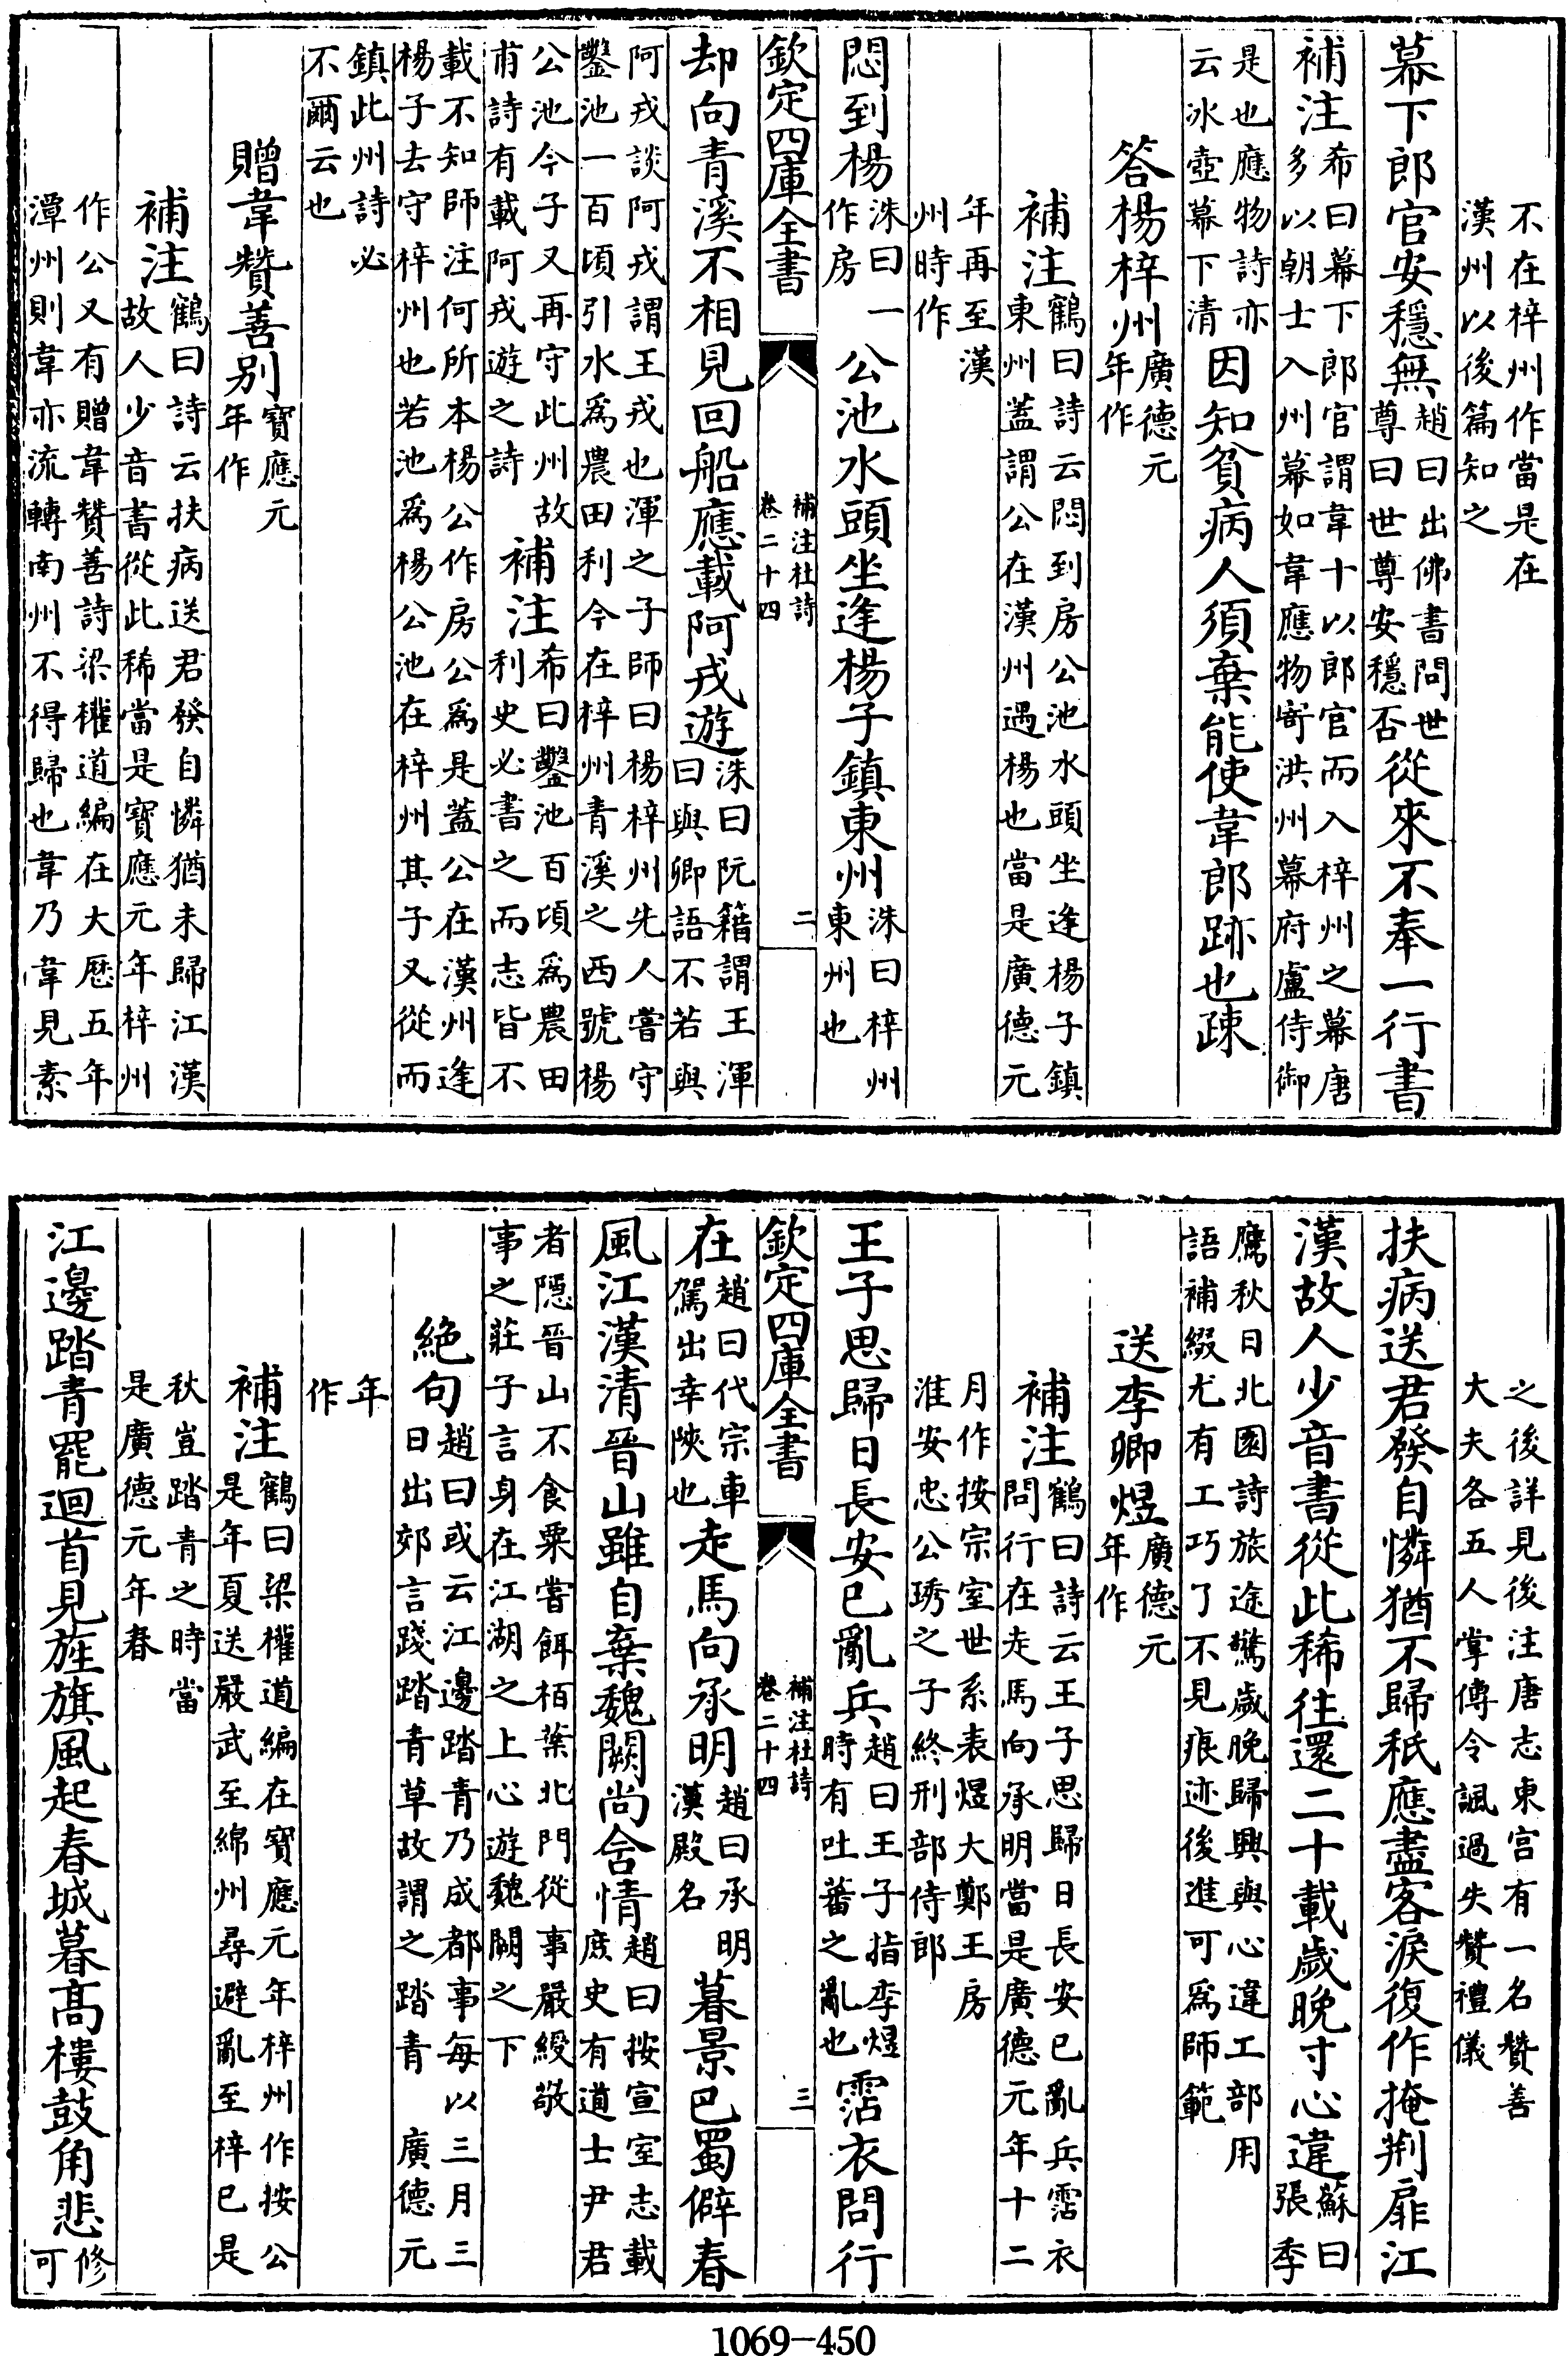 不在梓州作當是在
漢州以後篇知之
幕下郎官安穩無趙曰出佛書問世尊曰世尊安穩否從來不奉一行書
補注希曰幕下郎官謂韋十以郎官而入梓州之幕唐多以朝士入州幕如韋應物寄洪州幕府盧侍御
是也應物詩亦云冰壺幕下清因知貧病人須棄能使韋郎跡也疎
答楊梓州廣德元年作
補注鶴曰詩云悶到房公池水頭坐逢楊子鎮東州蓋謂公在漢州遇楊也當是廣德元
年再至漢州時作
悶到楊洙曰一作房公池水頭坐逢楊子鎮東州洙曰梓州東州也
欽定四庫全書 補注杜詩卷二十四 二
却向青溪不相見回船應載阿戎遊洙曰阮籍謂王渾曰與卿語不若與
阿戎談阿戎謂王戎也渾之子師曰楊梓州先人嘗守鑿池一百頃引水為農田利今在梓州青溪之西號楊
公池今子又再守此州故甫詩有載阿戎遊之詩補注希曰鑿池百頃為農田利史必書之而志皆不
載不知師注何所本楊公作房公為是蓋公在漢州逢楊子去守梓州也若池為楊公池在梓州其子又從而
鎮此州詩必不爾云也
贈韋贊善别寶應元年作
補注鶴曰詩云扶病送君發自憐猶未歸江漢故人少音書從此稀當是寶應元年梓州
作公又有贈韋贊善詩梁權道編在大歷五年潭州則韋亦流轉南州不得歸也韋乃韋見素
之後詳見後注唐志東宫有一名贊善大夫各五人掌傳令諷過失贊禮儀
扶病送君發自憐猶不歸秖應盡客淚復作掩荆扉江
漢故人少音書從此稀往還二十載歲晚寸心違蘇曰張季
鷹秋日北園詩旅途驚歲晚歸興與心違工部用語補綴尤有工巧了不見痕迹後進可為師範
送李卿煜廣德元年作
補注鶴曰詩云王子思歸日長安已亂兵霑衣問行在走馬向承明當是廣德元年十二
月作按宗室世系表煜大鄭王房淮安忠公琇之子終刑部侍郎
王子思歸日長安已亂兵趙曰王子指李煜時有吐蕃之亂也霑衣問行
欽定四庫全書 補注杜詩卷二十四 三
在趙曰代宗車駕出幸陜也走馬向承明趙曰承明漢殿名暮景巴蜀僻春
風江漢清晉山雖自棄魏闕尚含情趙曰按宣室志載庶史有道士尹君
者隱晉山不食粟嘗餌栢葉北門從事嚴綬敬事之莊子言身在江湖之上心遊魏闕之下
絶句趙曰或云江邊踏青乃成都事每以三月三日出郊言踐踏青草故謂之踏青 廣德元
年作
補注鶴曰梁權道編在寶應元年梓州作按公是年夏送嚴武至綿州尋避亂至梓已是
秋豈踏青之時當是廣德元年春
江邊踏青罷迴首見旌旗風起春城暮高樓鼓角悲修可
1069-450